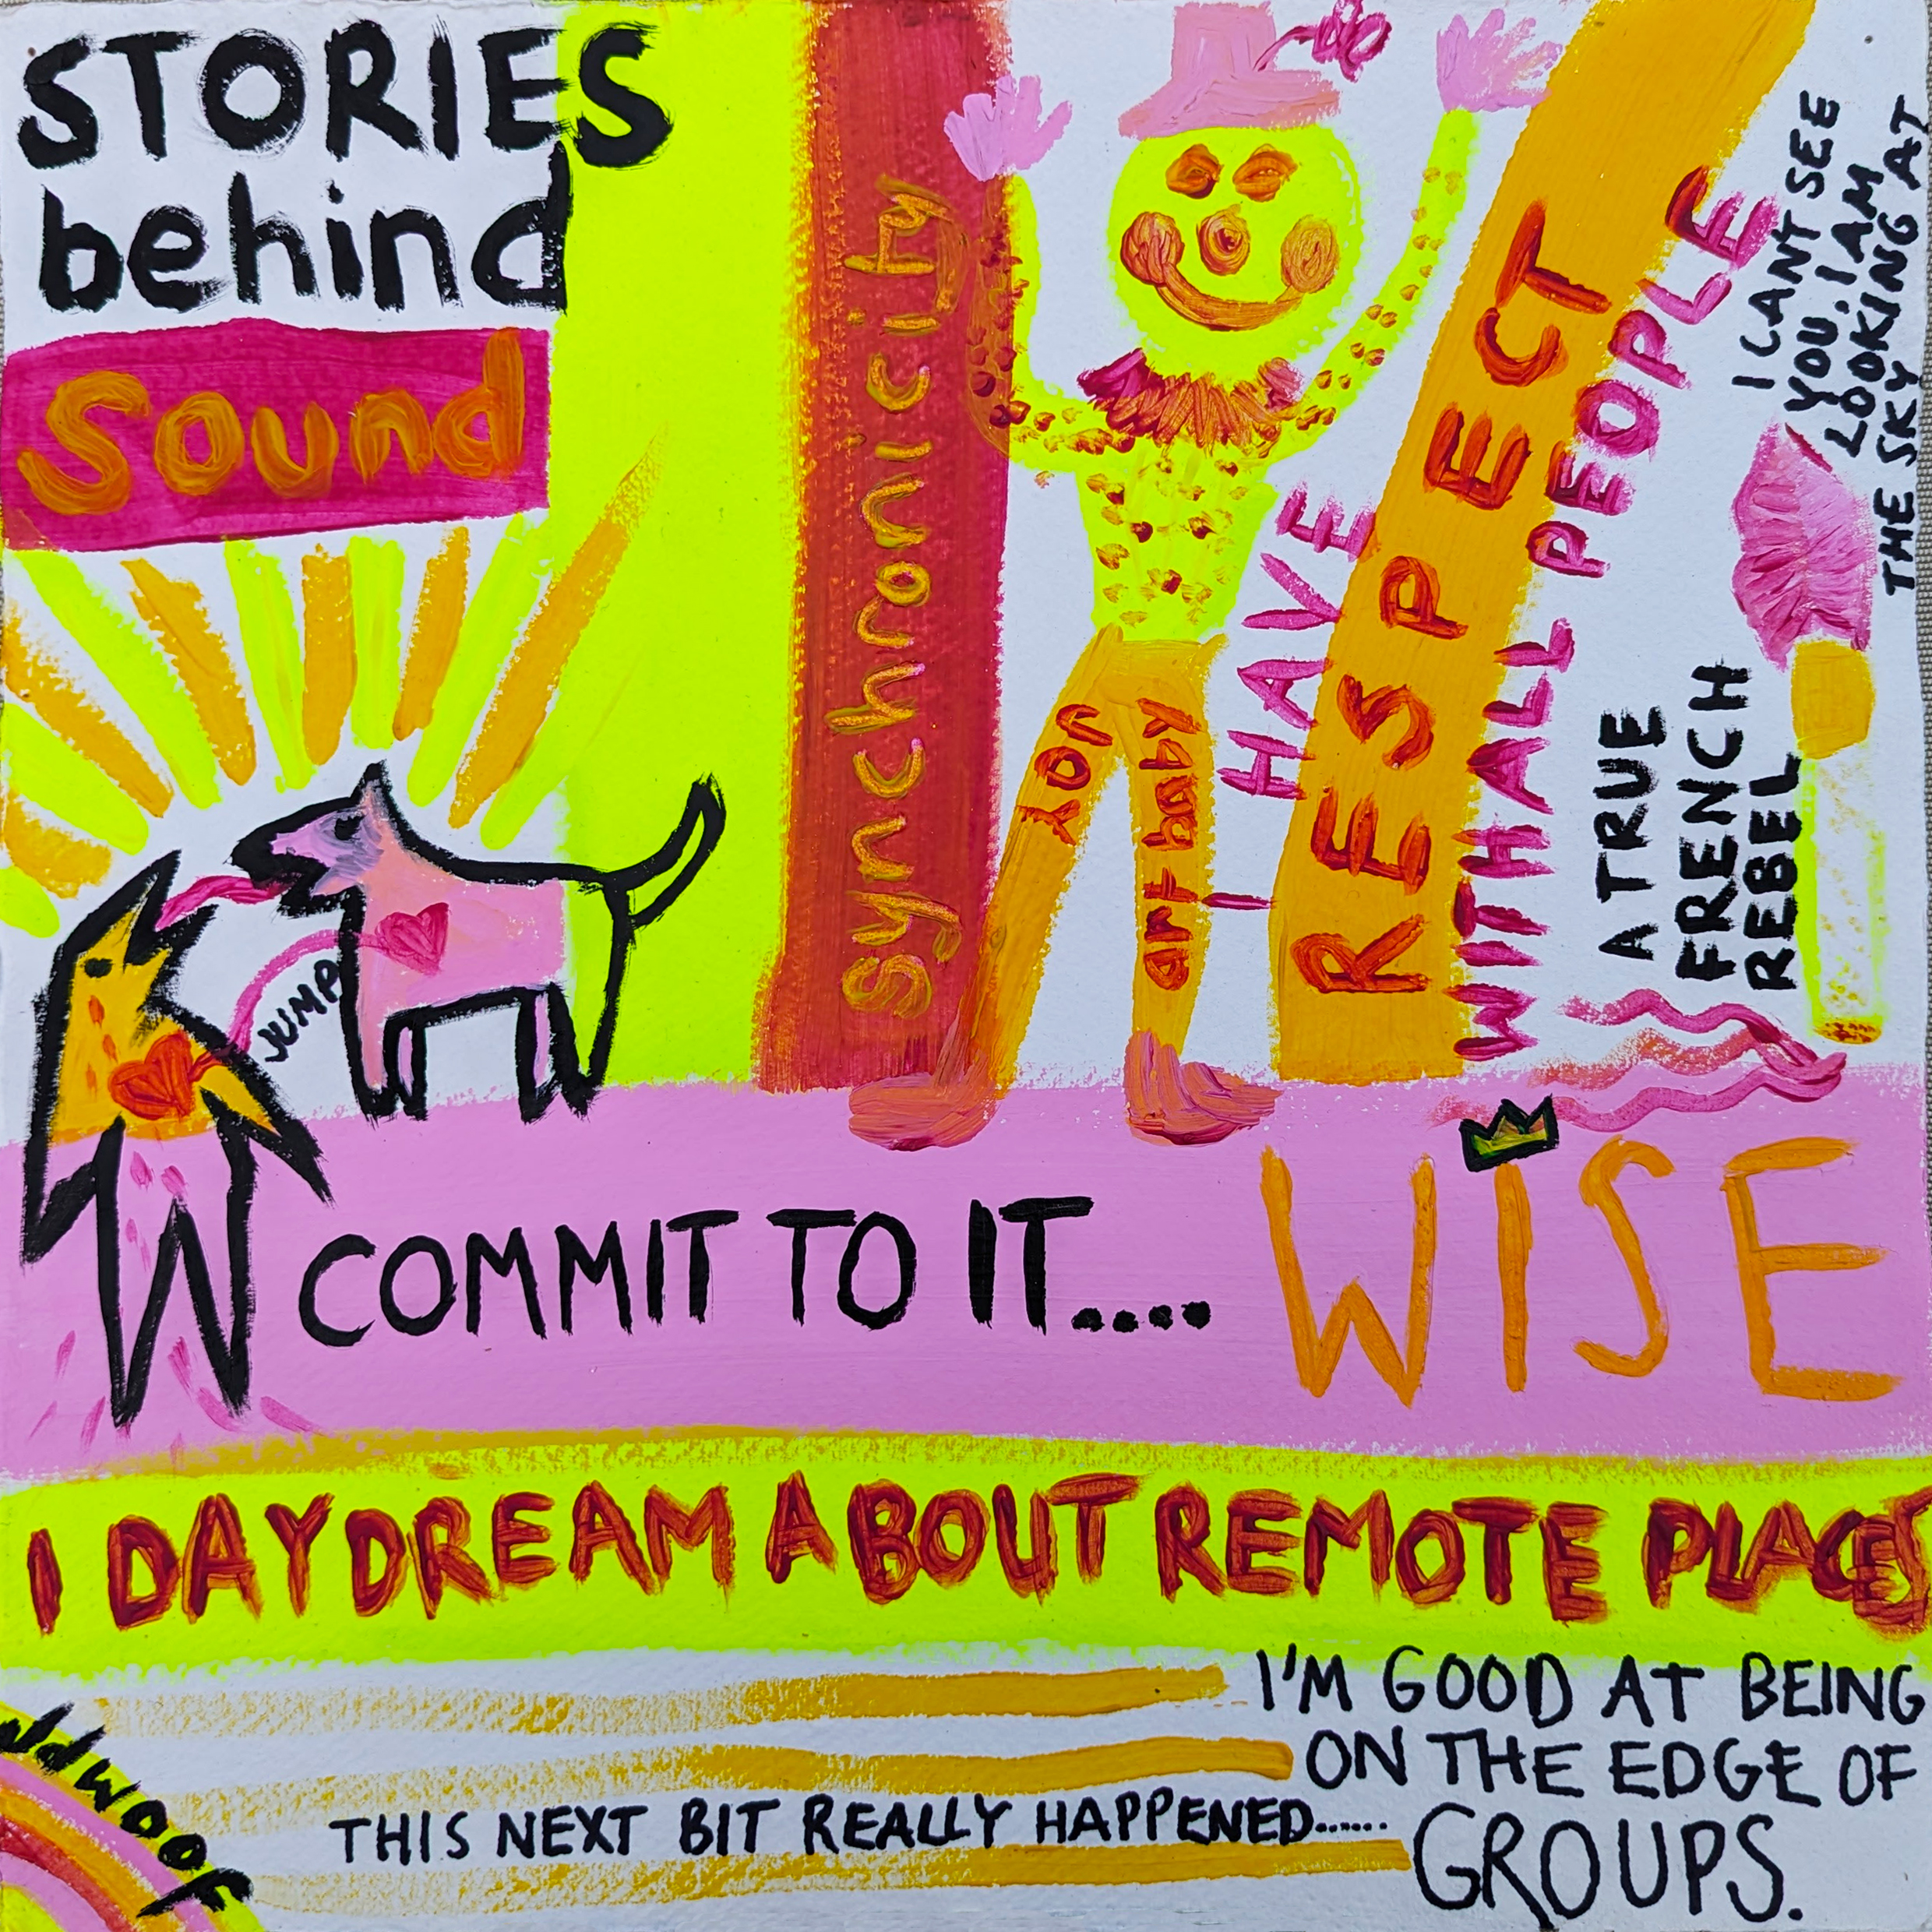 STORIES
behind
Sound
Synchronicity
you
art baby
I HAVE
RESPECT
WITH ALL PEOPLE
I CANT SEE
YOU. I AM
LOOKING AT
THE SKY
A TRUE
FRENCH
REBEL
JUMP
COMMIT TO IT....
WISE
I DAYDREAM ABOUT REMOTE PLACES
I'M GOOD AT BEING
ON THE EDGE OF
GROUPS.
THIS NEXT BIT REALLY HAPPENED......